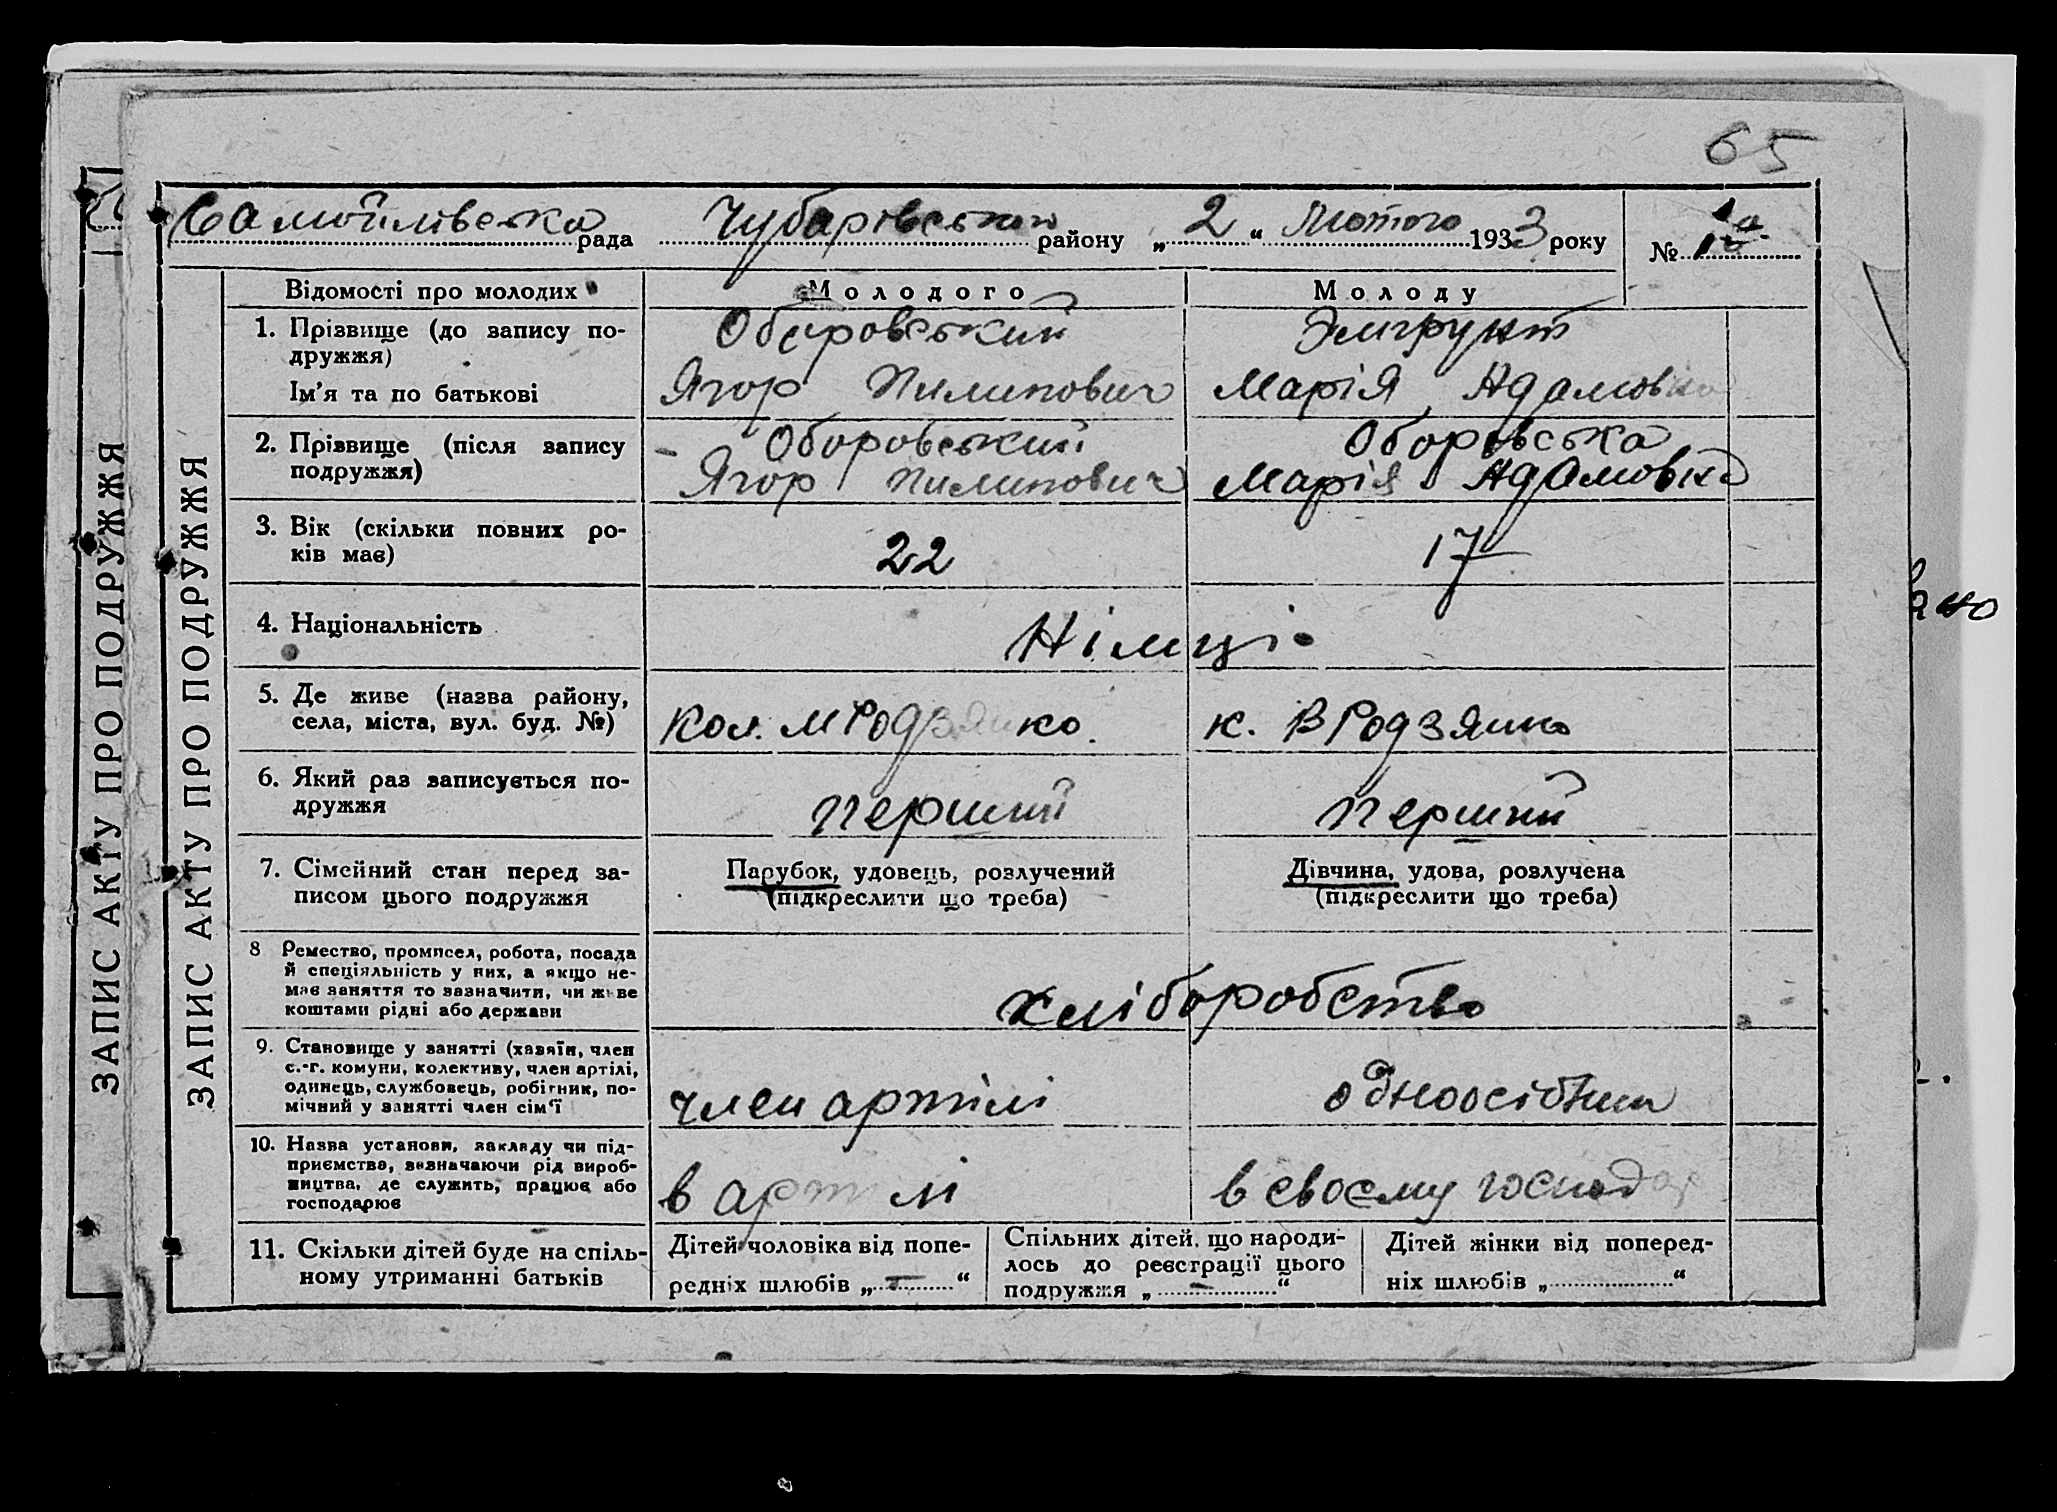 65
Самойлівська рада Чубарівського району „ 2 “ Лютого 1933 року №
Відомості про молодих
Молодого
Молоду
1. Прізвище (до запису по-
дружжя)
Оборовський
Эмгрунт
Ім'я та по батькові
Ягор Пилипович
Марія Адамовна
2. Прізвище (після запису
подружжя)
Оборовський
Ягор Пилипович
Оборовська
Марія Адамовна
3. Вік (скільки повних ро-
ків має)
22
17
4. Національність
Німці
5. Де живе (назва району,
села, міста, вул. буд. №)
кол. М Родзянко.
к. В Родзянко
6. Який раз записується по-
дружжя
перший
перший
7. Сімейний стан перед за-
писом цього подружжя
Парубок, удовець, розлучений
(підкреслити що треба)
Дівчина, удова, розлучена
(підкреслити що треба)
8 Ремество, промисел, робота, посада
й спеціяльність у них, а якщо не-
має заняття то зазначити, чи живе
коштами рідні або держави
хліборобство
9. Становище у занятті (хазяїн, член
с.-г. комуни, колективу, член артілі,
одинець, службовець, робітник, по-
мічний у занятті член сім'ї
член артілі
одноосібник
10. Назва установи, закладу чи під-
приємства, зазначаючи рід вироб-
ництва, де служить, працює або
господарює
в артілі
в своєму господар
11. Скільки дітей буде на спіль-
ному утриманні батьків
Дітей чоловіка від попе-
редніх шлюбів „ — “
Спільних дітей, що народи-
лось до реєстрації цього
подружжя „ — “
Дітей жінки від поперед-
ніх шлюбів „ “
ЗАПИС АКТУ ПРО ПОДРУЖЖЯ
ЗАПИС АКТУ ПРО ПОДРУЖЖЯ